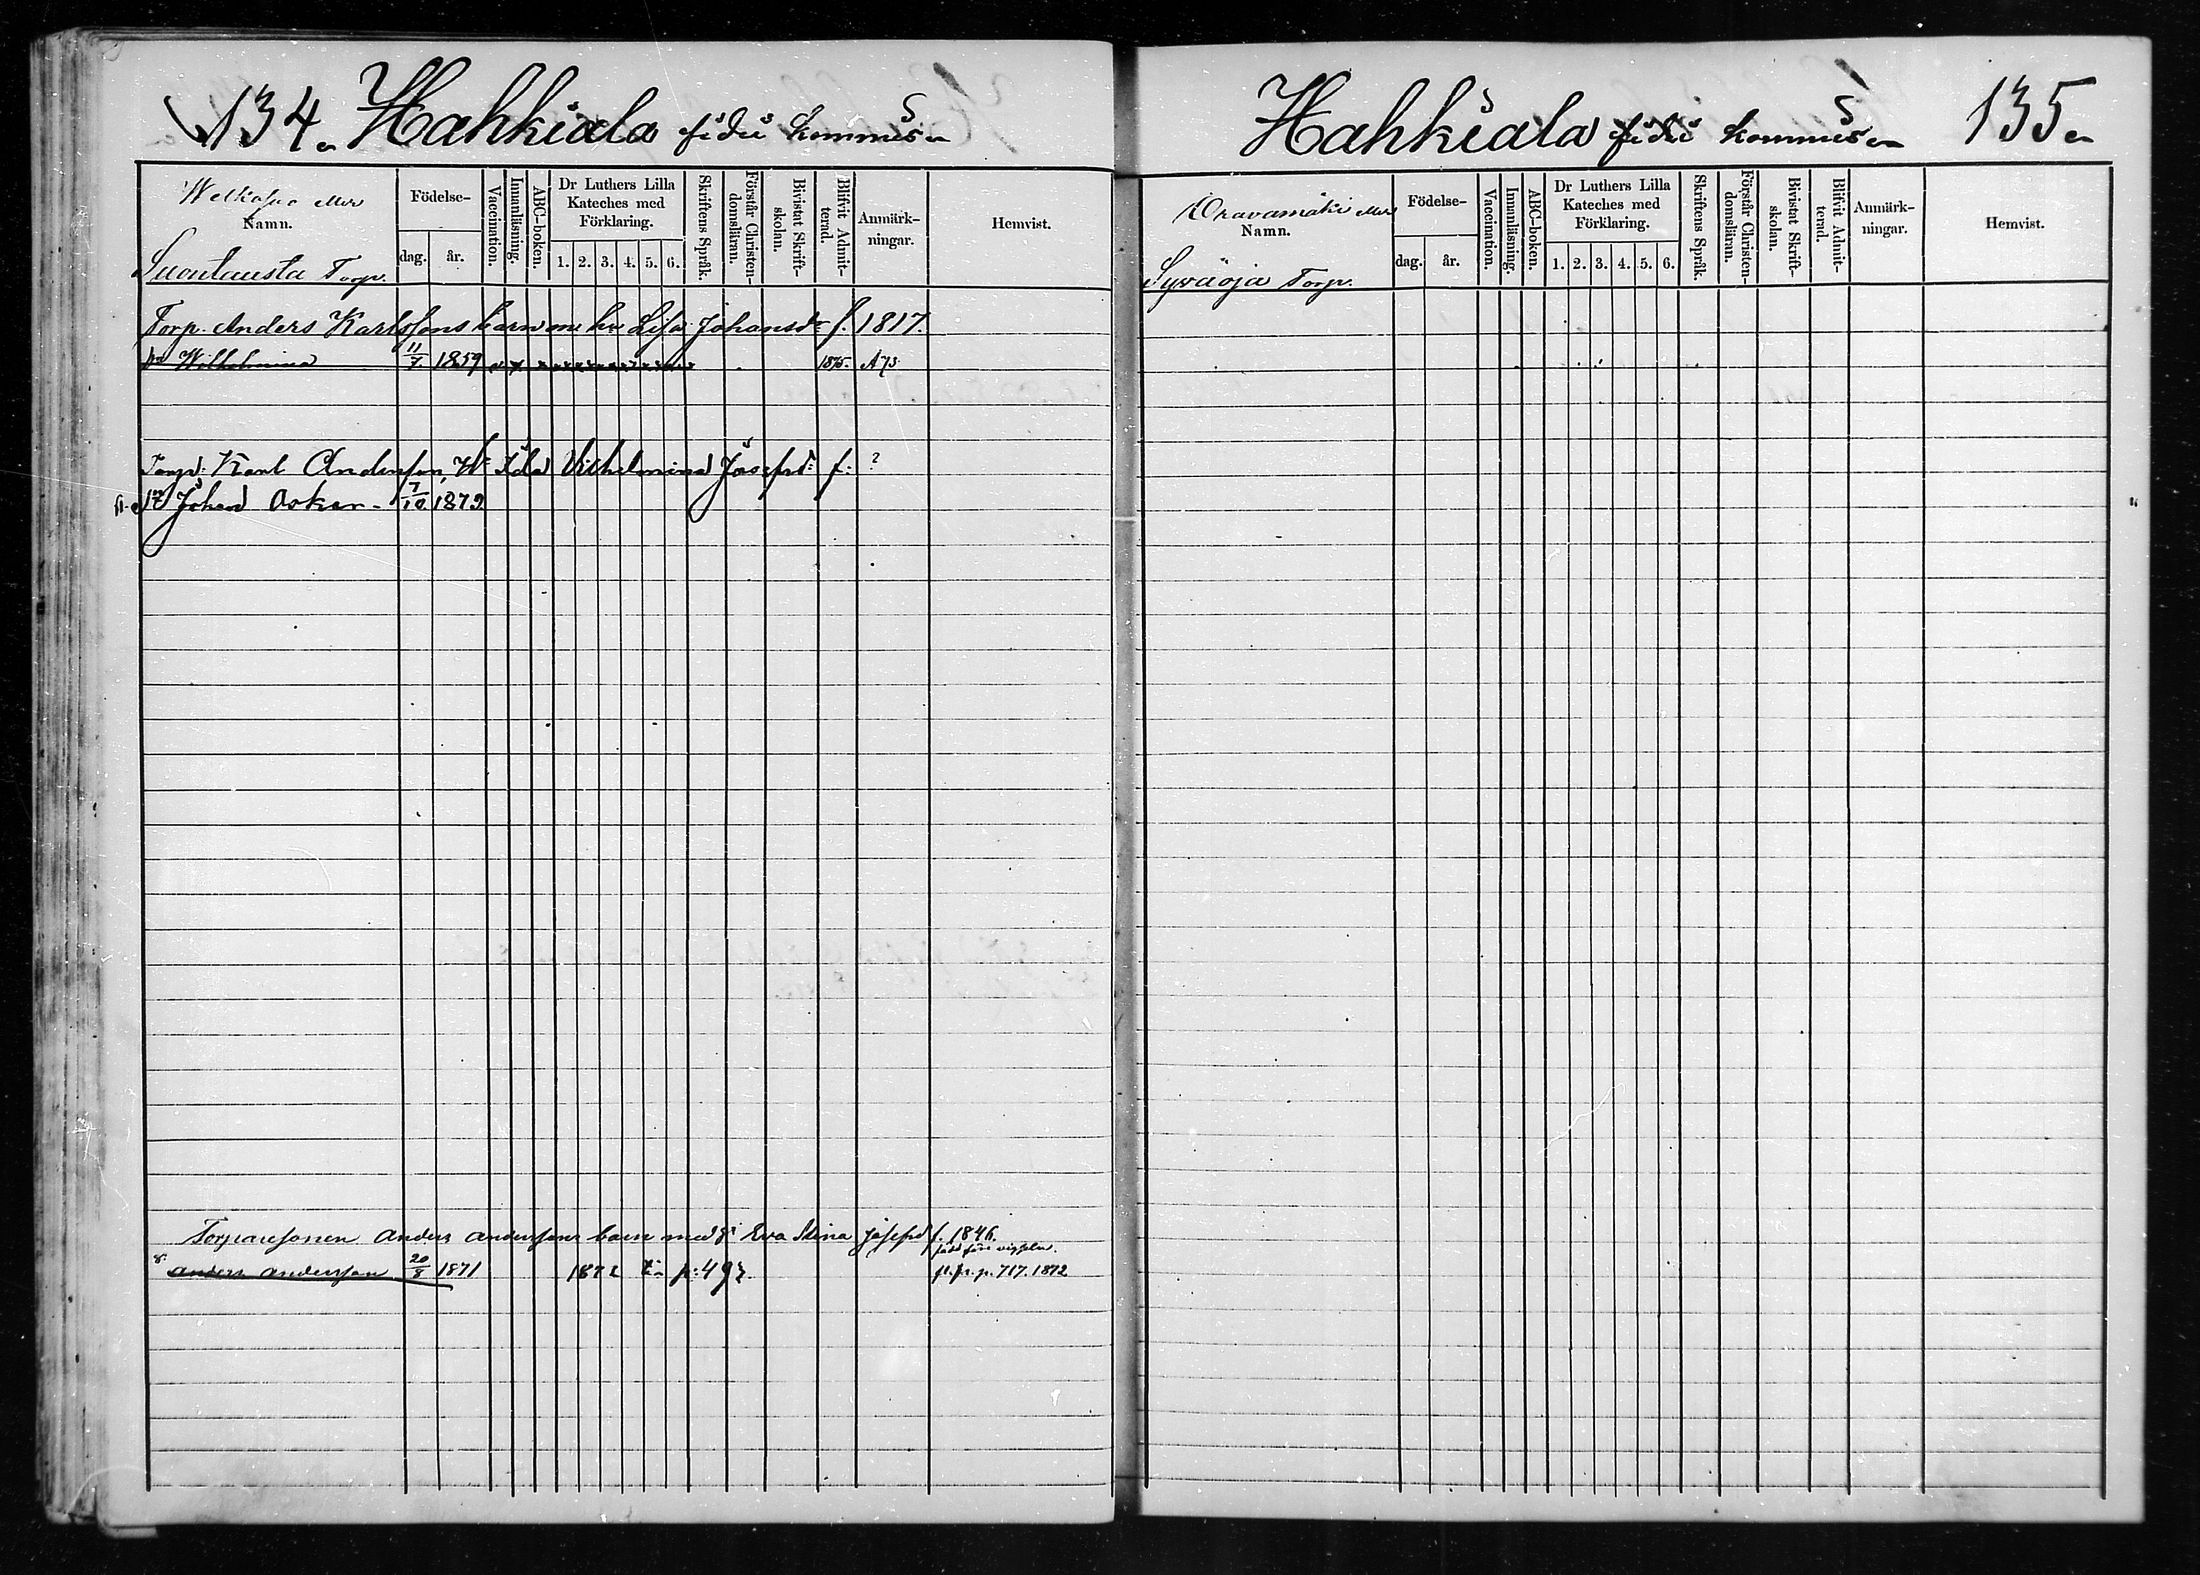 134. Hahkiala fidei kommiss
Welkapa eller
Namn.
Suontausta Torp.
Födelse-
dag. år.
Vaccination.
Innanläsning.
ABC-boken.
Dr Luthers Lilla
Kateches med
Förklaring.
1. 2. 3. 4. 5. 6.
Skriftens Språk.
Förstår Christen-
domsläran.
Bivistat Skrift-
skolan.
Blifvit Admit-
terad.
Anmärk-
ningar.
Hemvist.
Torp. Anders Karlssons barn m. hu Lisa Johansdr f. 1817.
Dr Wilhelmina 11/7 1859 1875.
Torp: Karl Andersson, H: Ida Vilhelmina Josefsd: f: ?
Johan Oskar 7/10 1879
Torparesonen Anders Anderssons barn med Eva Stina Josefsd f. 1846.
född före vigseln.
Anders Andersson 20/8 1871 1872 p: 497 fl. fr. p. 717. 1872
Hahkiala fidei kommiss 135
Oravamäki eller
Namn.
Syväoja Torp.
Födelse-
dag. år.
Vaccination.
Innanläsning.
ABC-boken.
Dr Luthers Lilla
Kateches med
Förklaring.
1. 2. 3. 4. 5. 6.
Skriftens Språk.
Förstår Christen-
domsläran.
Bivistat Skrift-
skolan.
Blifvit Admit-
terad.
Anmärk-
ningar.
Hemvist.